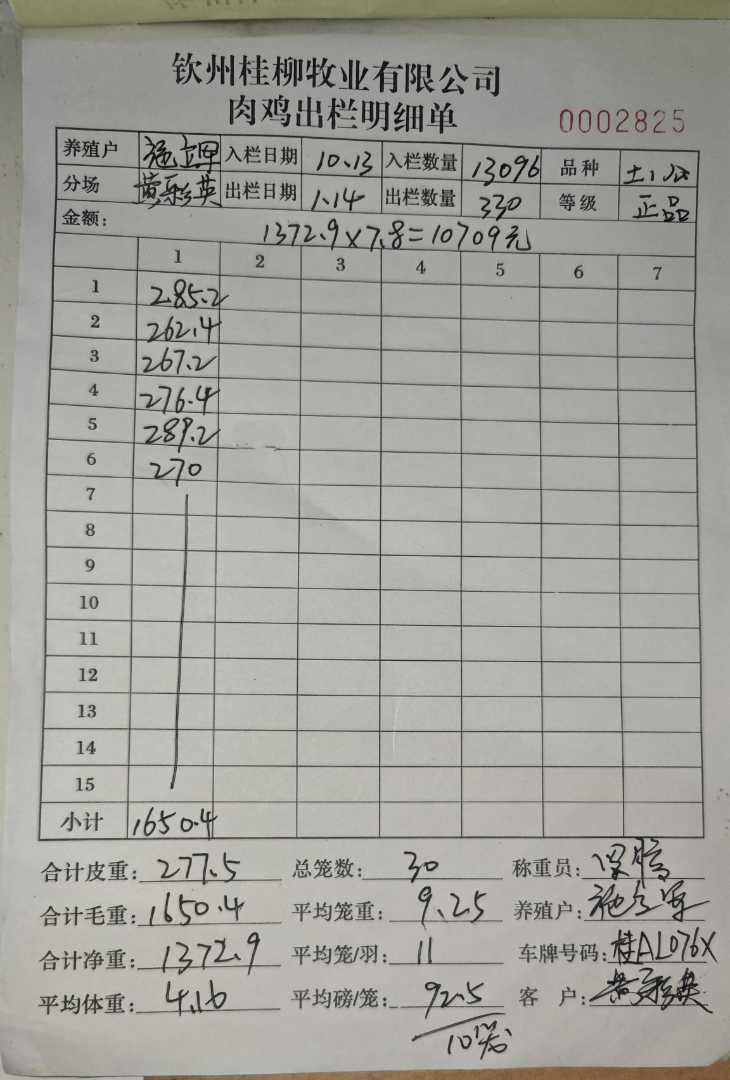 钦州桂柳牧业有限公司
肉鸡出栏明细单 0002825
养殖户 施 入栏日期 10.13 入栏数量 13096 品种 土
分场 黄彩英 出栏日期 1.14 出栏数量 330 等级 正品
金额: 1372.9×7.8=10709元
1 2 3 4 5 6 7
1 285.2
2 262.4
3 267.2
4 276.4
5 289.2
6 270
7
8
9
10
11
12
13
14
15
小计 1650.4
合计皮重: 277.5 总笼数: 30 称重员:
合计毛重: 1650.4 平均笼重: 9.25 养殖户: 施
合计净重: 1372.9 平均笼/羽: 11 车牌号码: 桂AL076X
平均体重: 4.16 平均磅/笼: 92.5 客 户: 黄彩英
10笼